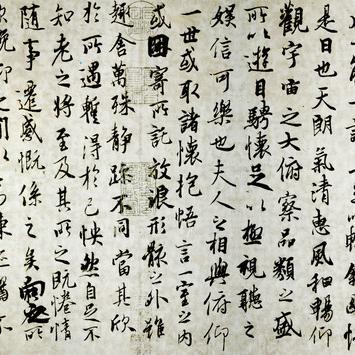 是日也天朗氣清惠風和暢仰
觀宇宙之大俯察品類之盛
所以遊目騁懷足以極視聽之
娛信可樂也夫人之相與俯仰
一世或取諸懷抱悟言一室之內
或因寄所託放浪形骸之外雖
趣舍萬殊靜躁不同當其欣
於所遇暫得於己怏然自足不
知老之將至及其所之既惓情
隨事遷感慨係之矣向之所
俛仰之間以為陳